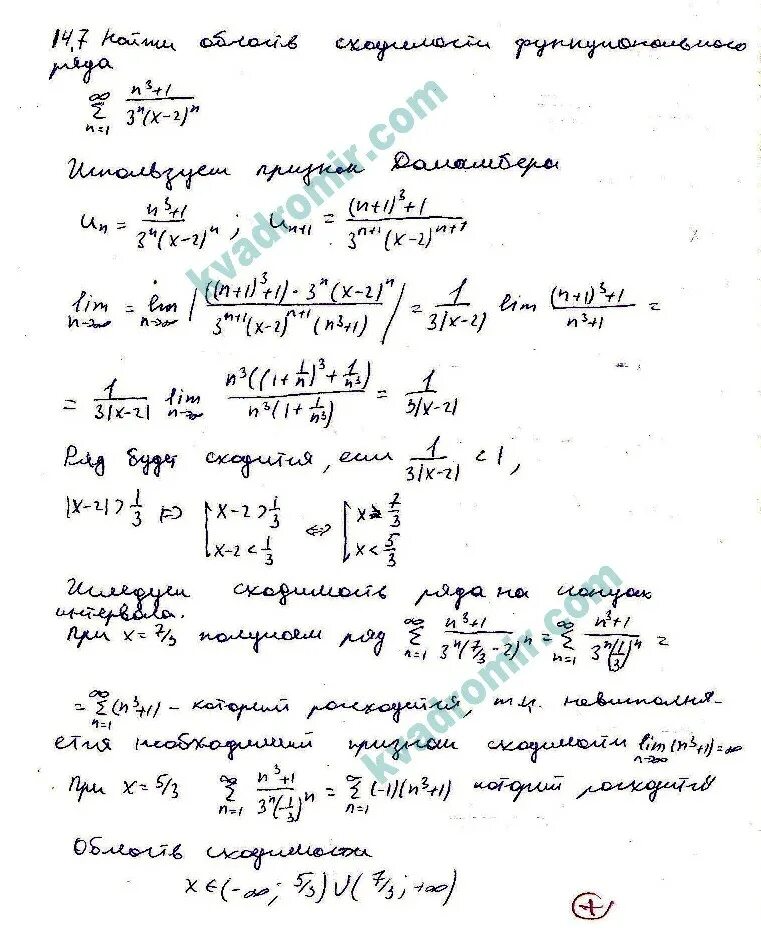 14.7 Найти область сходимости функционального
ряда
∞ Σ n=1 (n³+1)/(3ⁿ(x-2)ⁿ)
Используем признак Даламбера
uₙ = (n³+1)/(3ⁿ(x-2)ⁿ); uₙ₊₁ = ((n+1)³+1)/(3ⁿ⁺¹(x-2)ⁿ⁺¹)
lim n→∞ = lim n→∞ |(((n+1)³+1)·3ⁿ(x-2)ⁿ)/(3ⁿ⁺¹(x-2)ⁿ⁺¹(n³+1))| = 1/(3|x-2|) lim ((n+1)³+1)/(n³+1) =
= 1/(3|x-2|) lim n→∞ (n³((1+1/n)³+1/n³))/(n³(1+1/n³)) = 1/(3|x-2|)
Ряд будет сходится, если 1/(3|x-2|) < 1,
|x-2| > 1/3 ⇔ [ x-2 > 1/3 ⇔ [ x > 7/3
x-2 < 1/3 x < 5/3
Исследуем сходимость ряда на концах
интервала.
При x = 7/3 получаем ряд ∞ Σ n=1 (n³+1)/(3ⁿ(7/3-2)ⁿ) = ∞ Σ n=1 (n³+1)/(3ⁿ(1/3)ⁿ) =
= ∞ Σ n=1 (n³+1) – который расходится, т.к. невыполня-
ется необходимый признак сходимости lim n→∞ (n³+1) = ∞
При x = 5/3 ∞ Σ n=1 (n³+1)/(3ⁿ(-1/3)ⁿ) = ∞ Σ n=1 (-1)(n³+1) который расходится
Область сходимости
x ∈ (-∞; 5/3) ∪ (7/3; +∞)
+
kvadromir.com
kvadromir.com